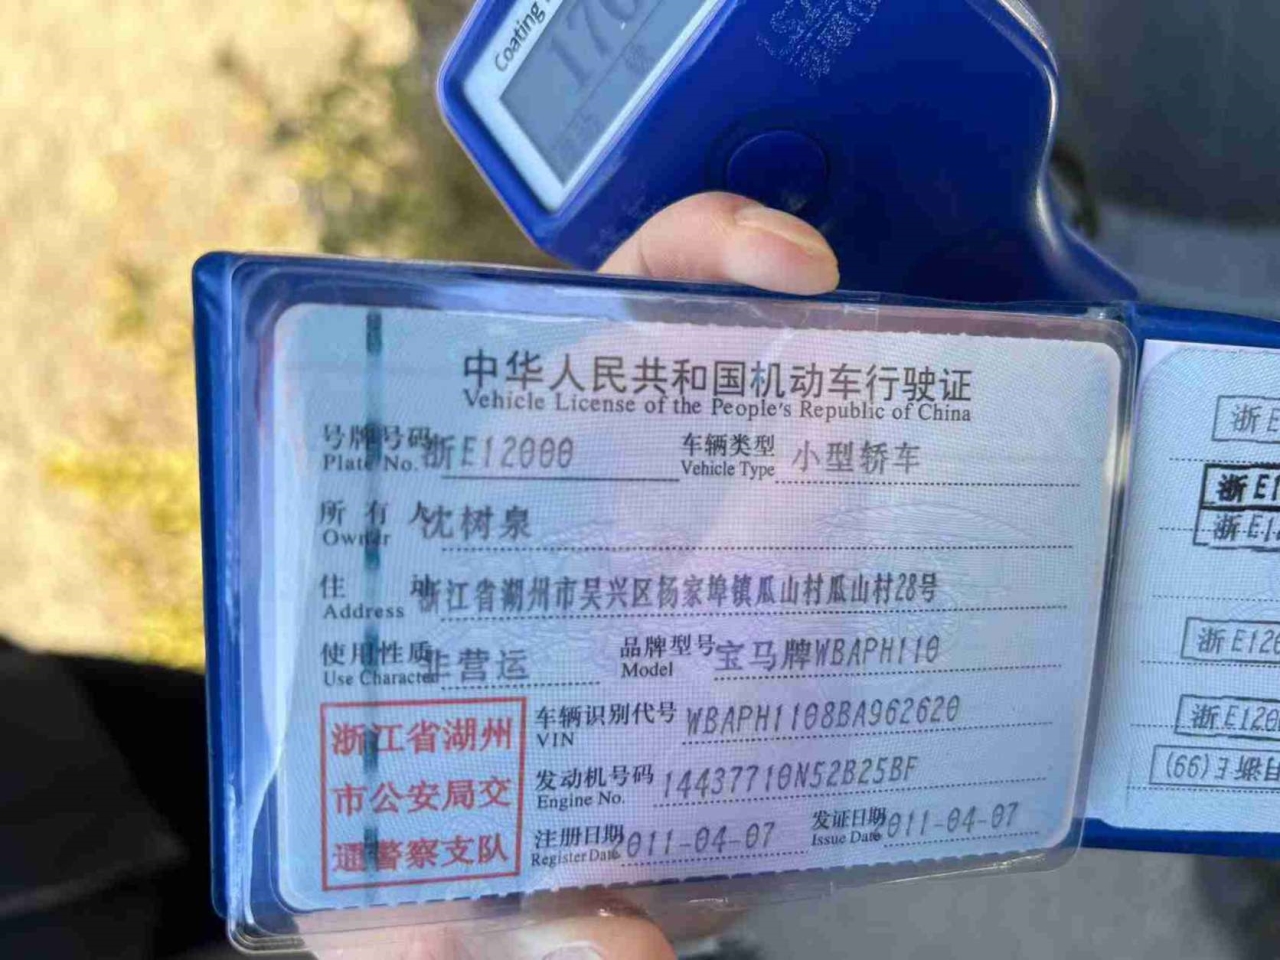 Coating
176
中华人民共和国机动车行驶证
Vehicle License of the People's Republic of China
号牌号码 浙E12000 车辆类型 小型轿车
Plate No. Vehicle Type
所有人 沈树泉
Owner
住址 浙江省湖州市吴兴区杨家埠镇瓜山村瓜山村28号
Address
使用性质 非营运 品牌型号 宝马牌WBAPH110
Use Character Model
浙江省湖州
市公安局交
通警察支队
车辆识别代号 WBAPH1108BA962620
VIN
发动机号码 14437710N52B25BF
Engine No.
注册日期 011-04-07 发证日期 011-04-07
Register Date Issue Date
浙E
浙E1
浙E1
浙E120
浙E120